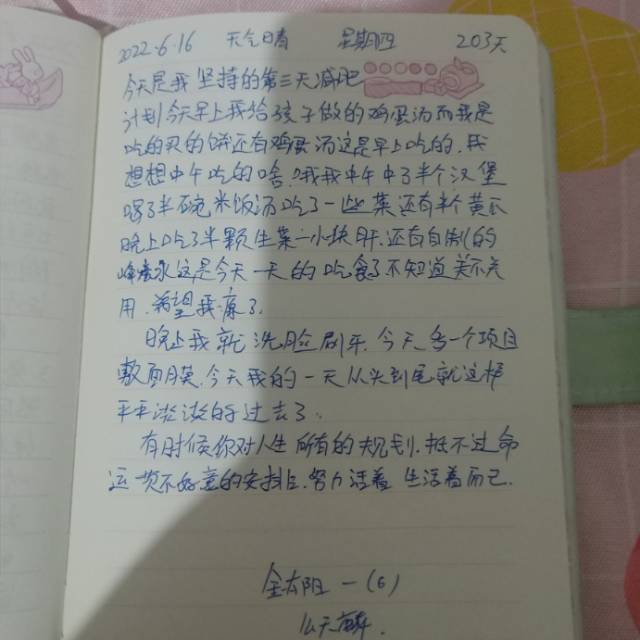 2022.6.16 天气晴 星期四 203天
今天是我坚持的第三天减肥
计划今天早上我给孩子做的鸡蛋汤而我是
吃的灭的饼还有鸡蛋汤这是早上吃的.我
想想中午吃的啥?哦我中午中了半个汉堡
喝了半碗米饭汤吃了一些菜还有半个黄瓜
晚上吃了半颗生菜一小块肝.还有自制的
蜂蜜水这是今天一天的吃食了不知道关不关
用.希望我瘦了.
晚上我就洗脸刷牙.今天多一个项目
敷面膜.今天我的一天从头到尾就这样
平平淡淡的过去了.
有时候你对人生所有的规划.抵不过命
运 不怀意的安排.努力活着 生活着而已.
一(6)